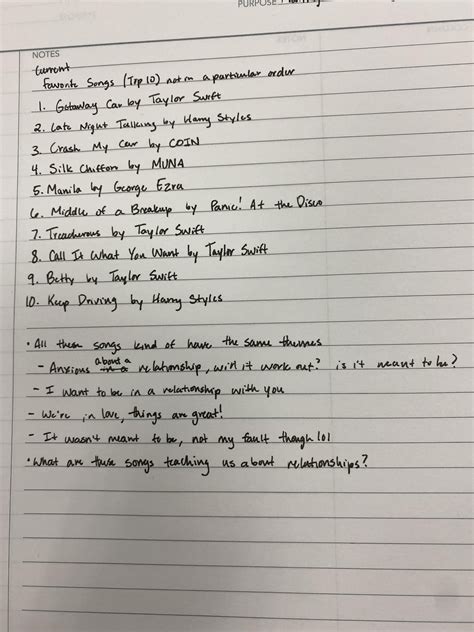 PURPOSE
NOTES
Current
favorite Songs (Top 10) not in a particular order
1. Getaway Car by Taylor Swift
2. Late Night Talking by Harry Styles
3. Crash My Car by COIN
4. Silk Chiffon by MUNA
5. Manila by George Ezra
6. Middle of a Breakup by Panic! At the Disco
7. Treacherous by Taylor Swift
8. Call It What You Want by Taylor Swift
9. Betty by Taylor Swift
10. Keep Driving by Harry Styles
• All these songs kind of have the same themes
- Anxious about a relationship, will it work out? is it meant to be?
- I want to be in a relationship with you
- We're in love, things are great!
- It wasn't meant to be, not my fault though lol
• What are these songs teaching us about relationships?